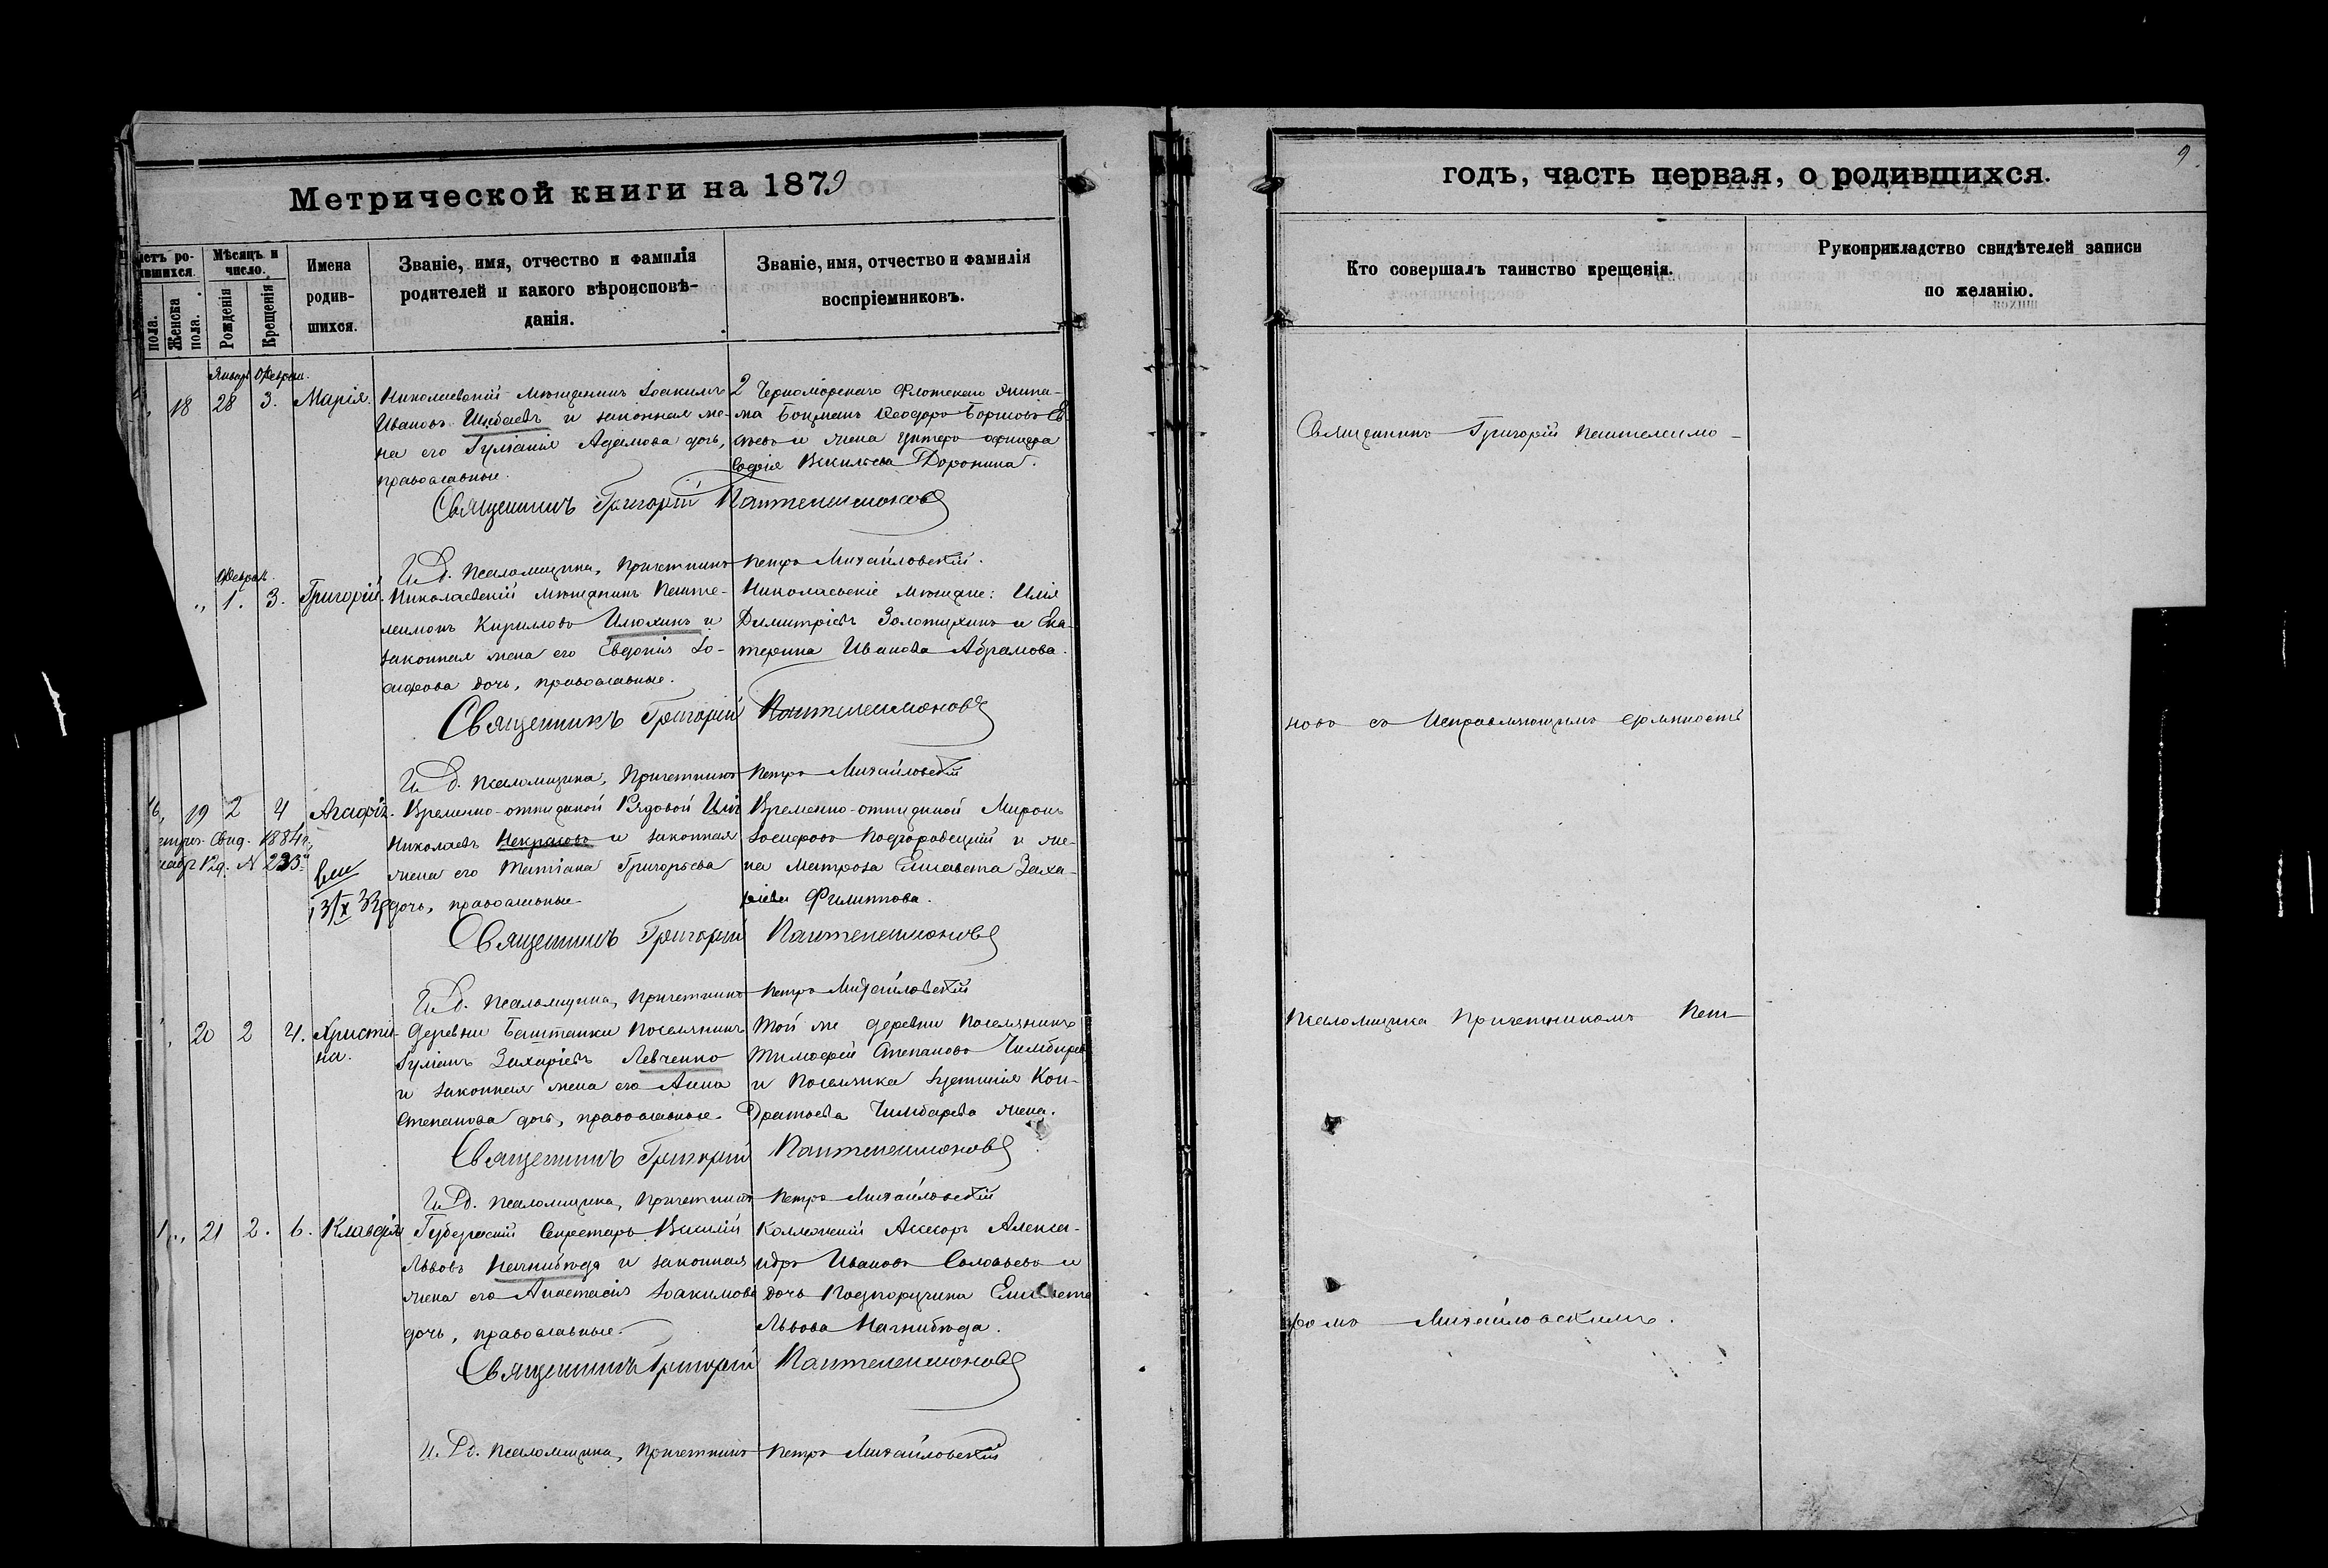 Метрической книги на 1879
годъ, часть первая, о родившихся.
9
Мѣсяцъ и число.
пола.
Женска пола.
Рожденія
Крещенія
Имена родив-
шихся.
Званіе, имя, отчество и фамилія
родителей и какого вѣроисповѣ-
данія.
Званіе, имя, отчество и фамилія
воспріемниковъ.
Кто совершалъ таинство крещенія.
Рукоприкладство свидѣтелей записи
по желанію.
18 28 3. Марія.
Николаевскій мѣщанинъ Іоакимъ
Ивановъ и законная же-
на его Іуліанія Адамова дочь,
православные.
2 Черноморскаго Флотскаго Экипа-
жа Боцманъ Ѳеодоръ Борисовъ
и жена Унтеръ офицера
Софія Васильева Доронина.
Священникъ Григорій Пантелеимоновъ
И. Д. Псаломщика, Причетникъ Петръ Михайловскій.
Феврал.
1. 3. Григорій.
Николаевскій мѣщанинъ Панте-
леимонъ Кирилловъ Илюхинъ и
законная жена его Евдокія Іо-
сифова дочь, православные.
Николаевскіе мѣщане: Илія
Димитріевъ Золотухинъ и Ека-
терина Иванова Абрамова.
Священникъ Григорій Пантелеимоновъ
И. Д. Псаломщика, Причетникъ Петръ Михайловскій
19 2 4 Агафія.
Временно-отпускной Рядовой Илія
Николаевъ Некрасовъ и законная
жена его Татіана Григорьева
дочь, православные
Временно-отпускной Миронъ
Іосифовъ Подгородецкій и же-
на Матроса Елисавета Заха-
ріева Филиппова.
Свид. 1884 г.
Священникъ Григорій Пантелеимоновъ
И. Д. Псаломщика, Причетникъ Петръ Михайловскій
20 2 4. Христи-
на.
Деревни Баштанки Поселянинъ
Іуліанъ Захаріевъ Левченко
и законная жена его Анна
Степанова дочь, православные.
Той же деревни Поселянинъ
Тимофей Степановъ
и Поселянка Іустинія Кон-
дратьева Чимбарева жена.
Священникъ Григорій Пантелеимоновъ
И. Д. Псаломщика, Причетникъ Петръ Михайловскій
21 2. 6. Клавдія
Губернскій Секретарь Василій
Львовъ Нагнибѣда и законная
жена его Анастасія Іоакимова
дочь, православные.
Коллежскій Асессоръ Алекса-
ндръ Ивановъ Соловьевъ и
дочь Подпоручика Елисавета
Львова Нагнибѣда.
Священникъ Григорій Пантелеимоновъ
И. Д. Псаломщика, Причетникъ Петръ Михайловскій
Священникъ Григорій Пантелеимо-
новъ съ Исправляющимъ должность
Псаломщика Причетникомъ Пет-
ромъ Михайловскимъ.